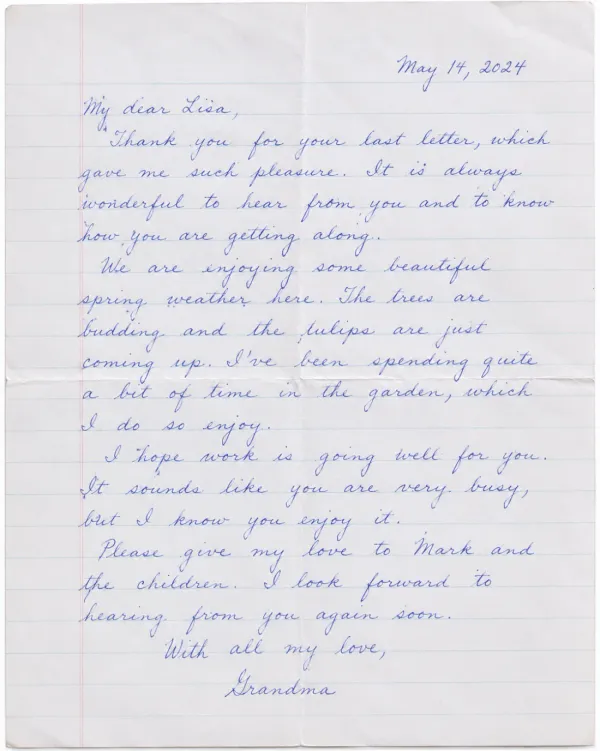 May 14, 2024
My dear Lisa,
Thank you for your last letter, which
gave me such pleasure. It is always
wonderful to hear from you and to know
how you are getting along.
We are enjoying some beautiful
spring weather here. The trees are
budding and the tulips are just
coming up. I've been spending quite
a bit of time in the garden, which
I do so enjoy.
I hope work is going well for you.
It sounds like you are very busy,
but I know you enjoy it.
Please give my love to Mark and
the children. I look forward to
hearing from you again soon.
With all my love,
Grandma